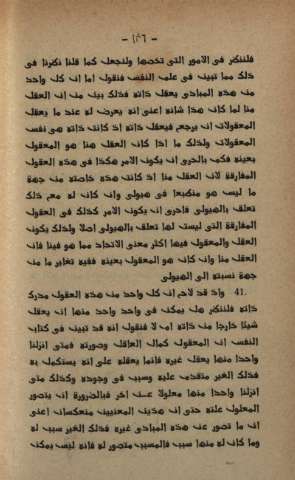 - ١٤٦ -
فلننظر فى الامور التى تخصها ولنجعل كما قلنا نظرنا فى
ذلك مما تبين فى علم النفس فنقول اما ان كل واحد
من هذه المبادى يعقل ذاته فذلك بين من ان العقل
منا لما كان هذا شانه اعنى انه يعرض له عند ما يعقل
المعقولات ان يرجع فيعقل ذاته اذ كانت ذاته هى نفس
المعقولات ولذلك ما اذا كان العقل هنا هو المعقول
بعينه فكم بالحرى ان يكون الامر هكذا فى هذه العقول
المفارقة لان العقل منا اذ كانت هذه خاصته من جهة
ما ليس هو منطبعا فى هيولى وان كان له مع ذلك
تعلق بالهيولى فاحرى ان يكون الامر كذلك فى العقول
المفارقة التى ليست لها تعلق بالهيولى اصلا ولذلك يكون
العقل والمعقول فيها اكثر معنى الاتحاد مما هو فينا فان
العقل منا وان كان هو المعقول بعينه ففيه تغاير ما من
جهة نسبته الى الهيولى
41. واذ قد لاح ان كل واحد من هذه العقول مدرك
ذاته فلننظر هل يمكن فى واحد واحد منها ان يعقل
شيئا خارجا من ذاته ام لا فنقول انه قد تبين فى كتاب
النفس ان المعقول كمال العاقل وصورته فمتى انزلنا
واحدا منها يعقل غيره فانما يعقله على انه يستكمل به
فذلك الغير متقدم عليه وسبب فى وجوده وكذلك متى
انزلنا واحدا منها معلولا عن اخر فبالضرورة ان يتصور
المعلول علته حتى ان هذين المعنيين منعكسان اعنى
ان ما تصور من هذه المبادى غيره فذلك الغير سبب له
وما كان له منها سبب فالمسبب متصور له فانه ليس يمكن